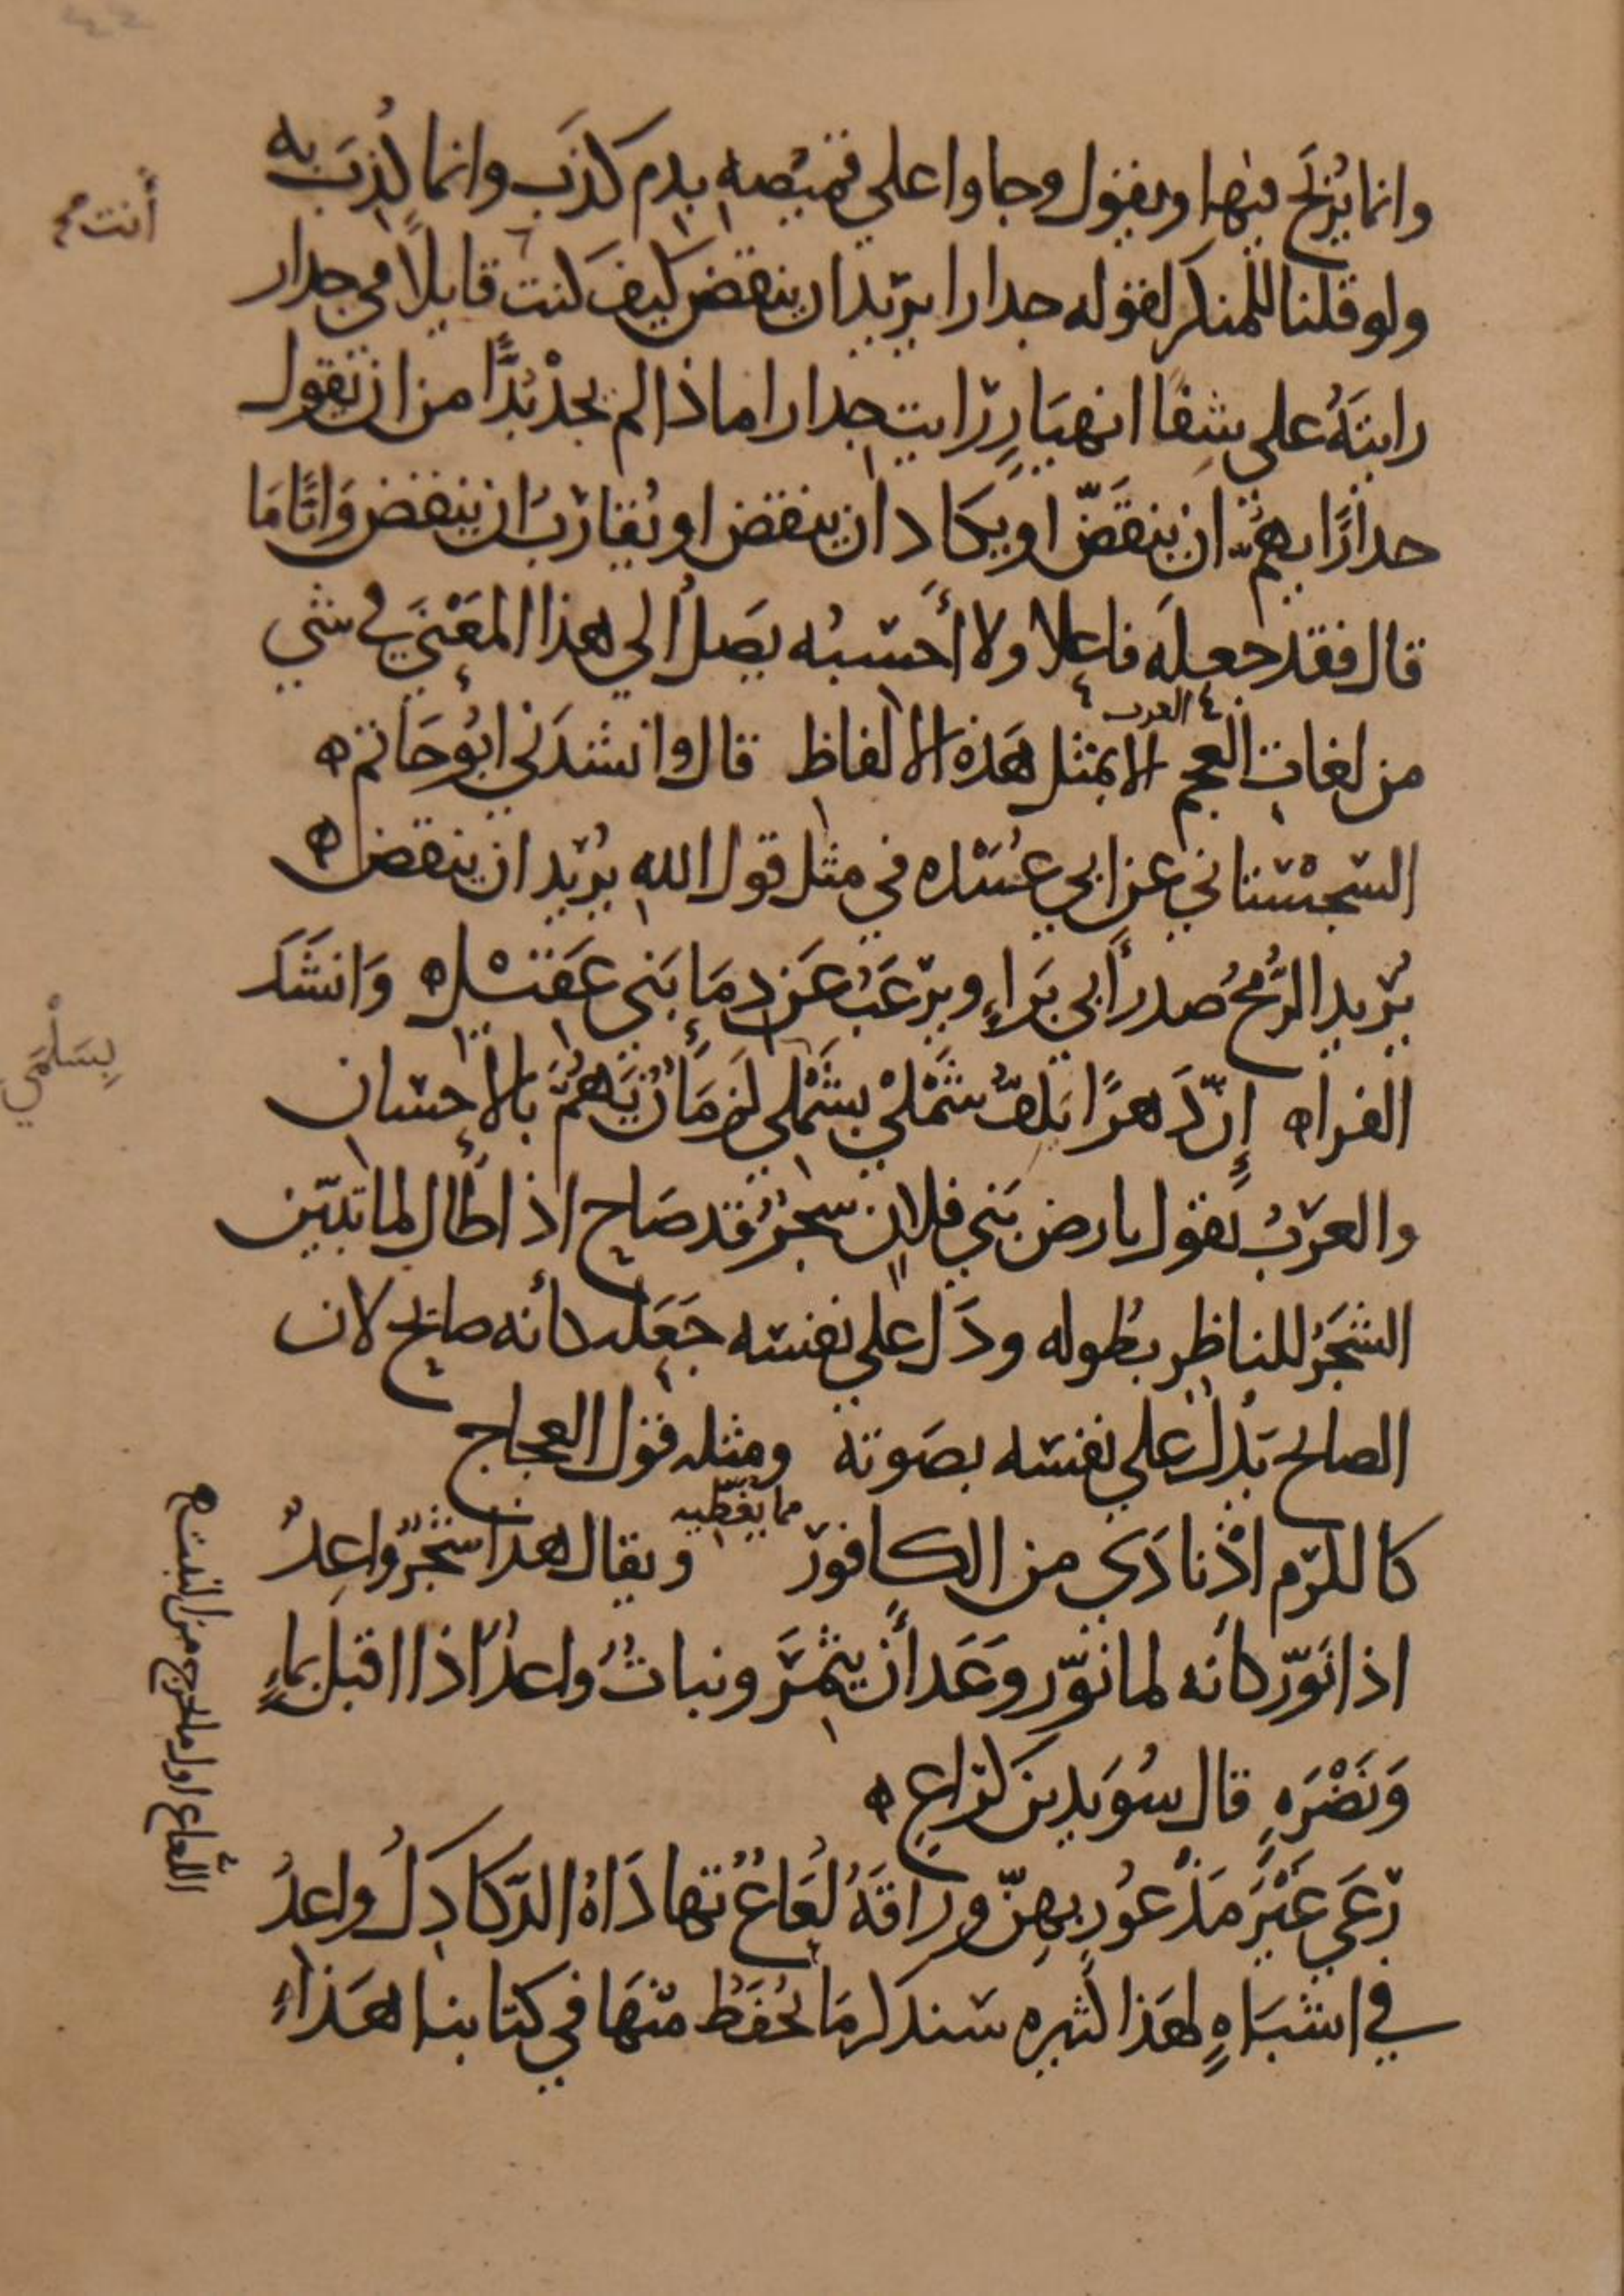 وانما يُربَح فيها ويقول وجاوا على قميصه بدم كذب وانما كُذِبَ به
ولو قلنا للمنكر لقوله جدارا يريد ان ينقض كيف كنت قايلاً في جدار
رايتَهُ على شفا انهيَارٍ رايت جدارا ماذا لم يجدْ بُدًّا من ان يقول
جدارًا يهُمّ ان ينقَضّ او يكاد ان ينقض او يُقارِبُ ان ينقض وَايًّا مَا
قال فقد جعلَه فاعلا ولا أحسبُه يصَل الي هذا المعْنَي في شي
من لغات العجم الا بمثل هَذه الالفاظ قال وانشدَني ابُو حَاتم ه
العرب
السّجسْتاني عن ابي عُبَيْده في مثل قول اللهِ يُريد ان ينقض ه
يُريد الرُّمحُ صدرَ أبي بَراءٍ ويرغَبُ عَن دِمَا بَني عَقيْل ه وَانشَدَ
الفراه إنّ دَهرًا يَلفّ شَمْليْ بشَمْلي لزمَانٌ يَهُمّ بالاحسان
والعرَبُ تقول بارض بَني فلان شجرٌ قد صَاح اذا طال لما تبيّن
الشجَرُ للناظِر بطُوله ودَل علي نفسه جَعَله كأنه صايح لان
الصايح يَدُل علي نفسه بصَوته ومثله قول العجاج
كالكرم اذْ نادَي من الكافور ويقال هذا شجَرٌ واعِدٌ
مما يغَطّيه
اذا نَوّر كأنه لما نوّر وعَدَ أن يثمرَ ونباتٌ واعدٌ اذا اقبل بماءٍ
وَنَضْرَهٍ قال سُوَيد بن كراع ه
رَعَي غيْرَ مَذْعُورٍ بهِنّ ورَاقَهُ لُعَاعٌ تهادَاهُ الدّكادِكُ واعدُ
في اشبَاهٍ لهَذا كثيره سنذكر مَا يُحفَظُ منهَا في كتابنا هَذا
أنت
بِسَلْمَي
اللُّعاع اول ما يخرج من النبت